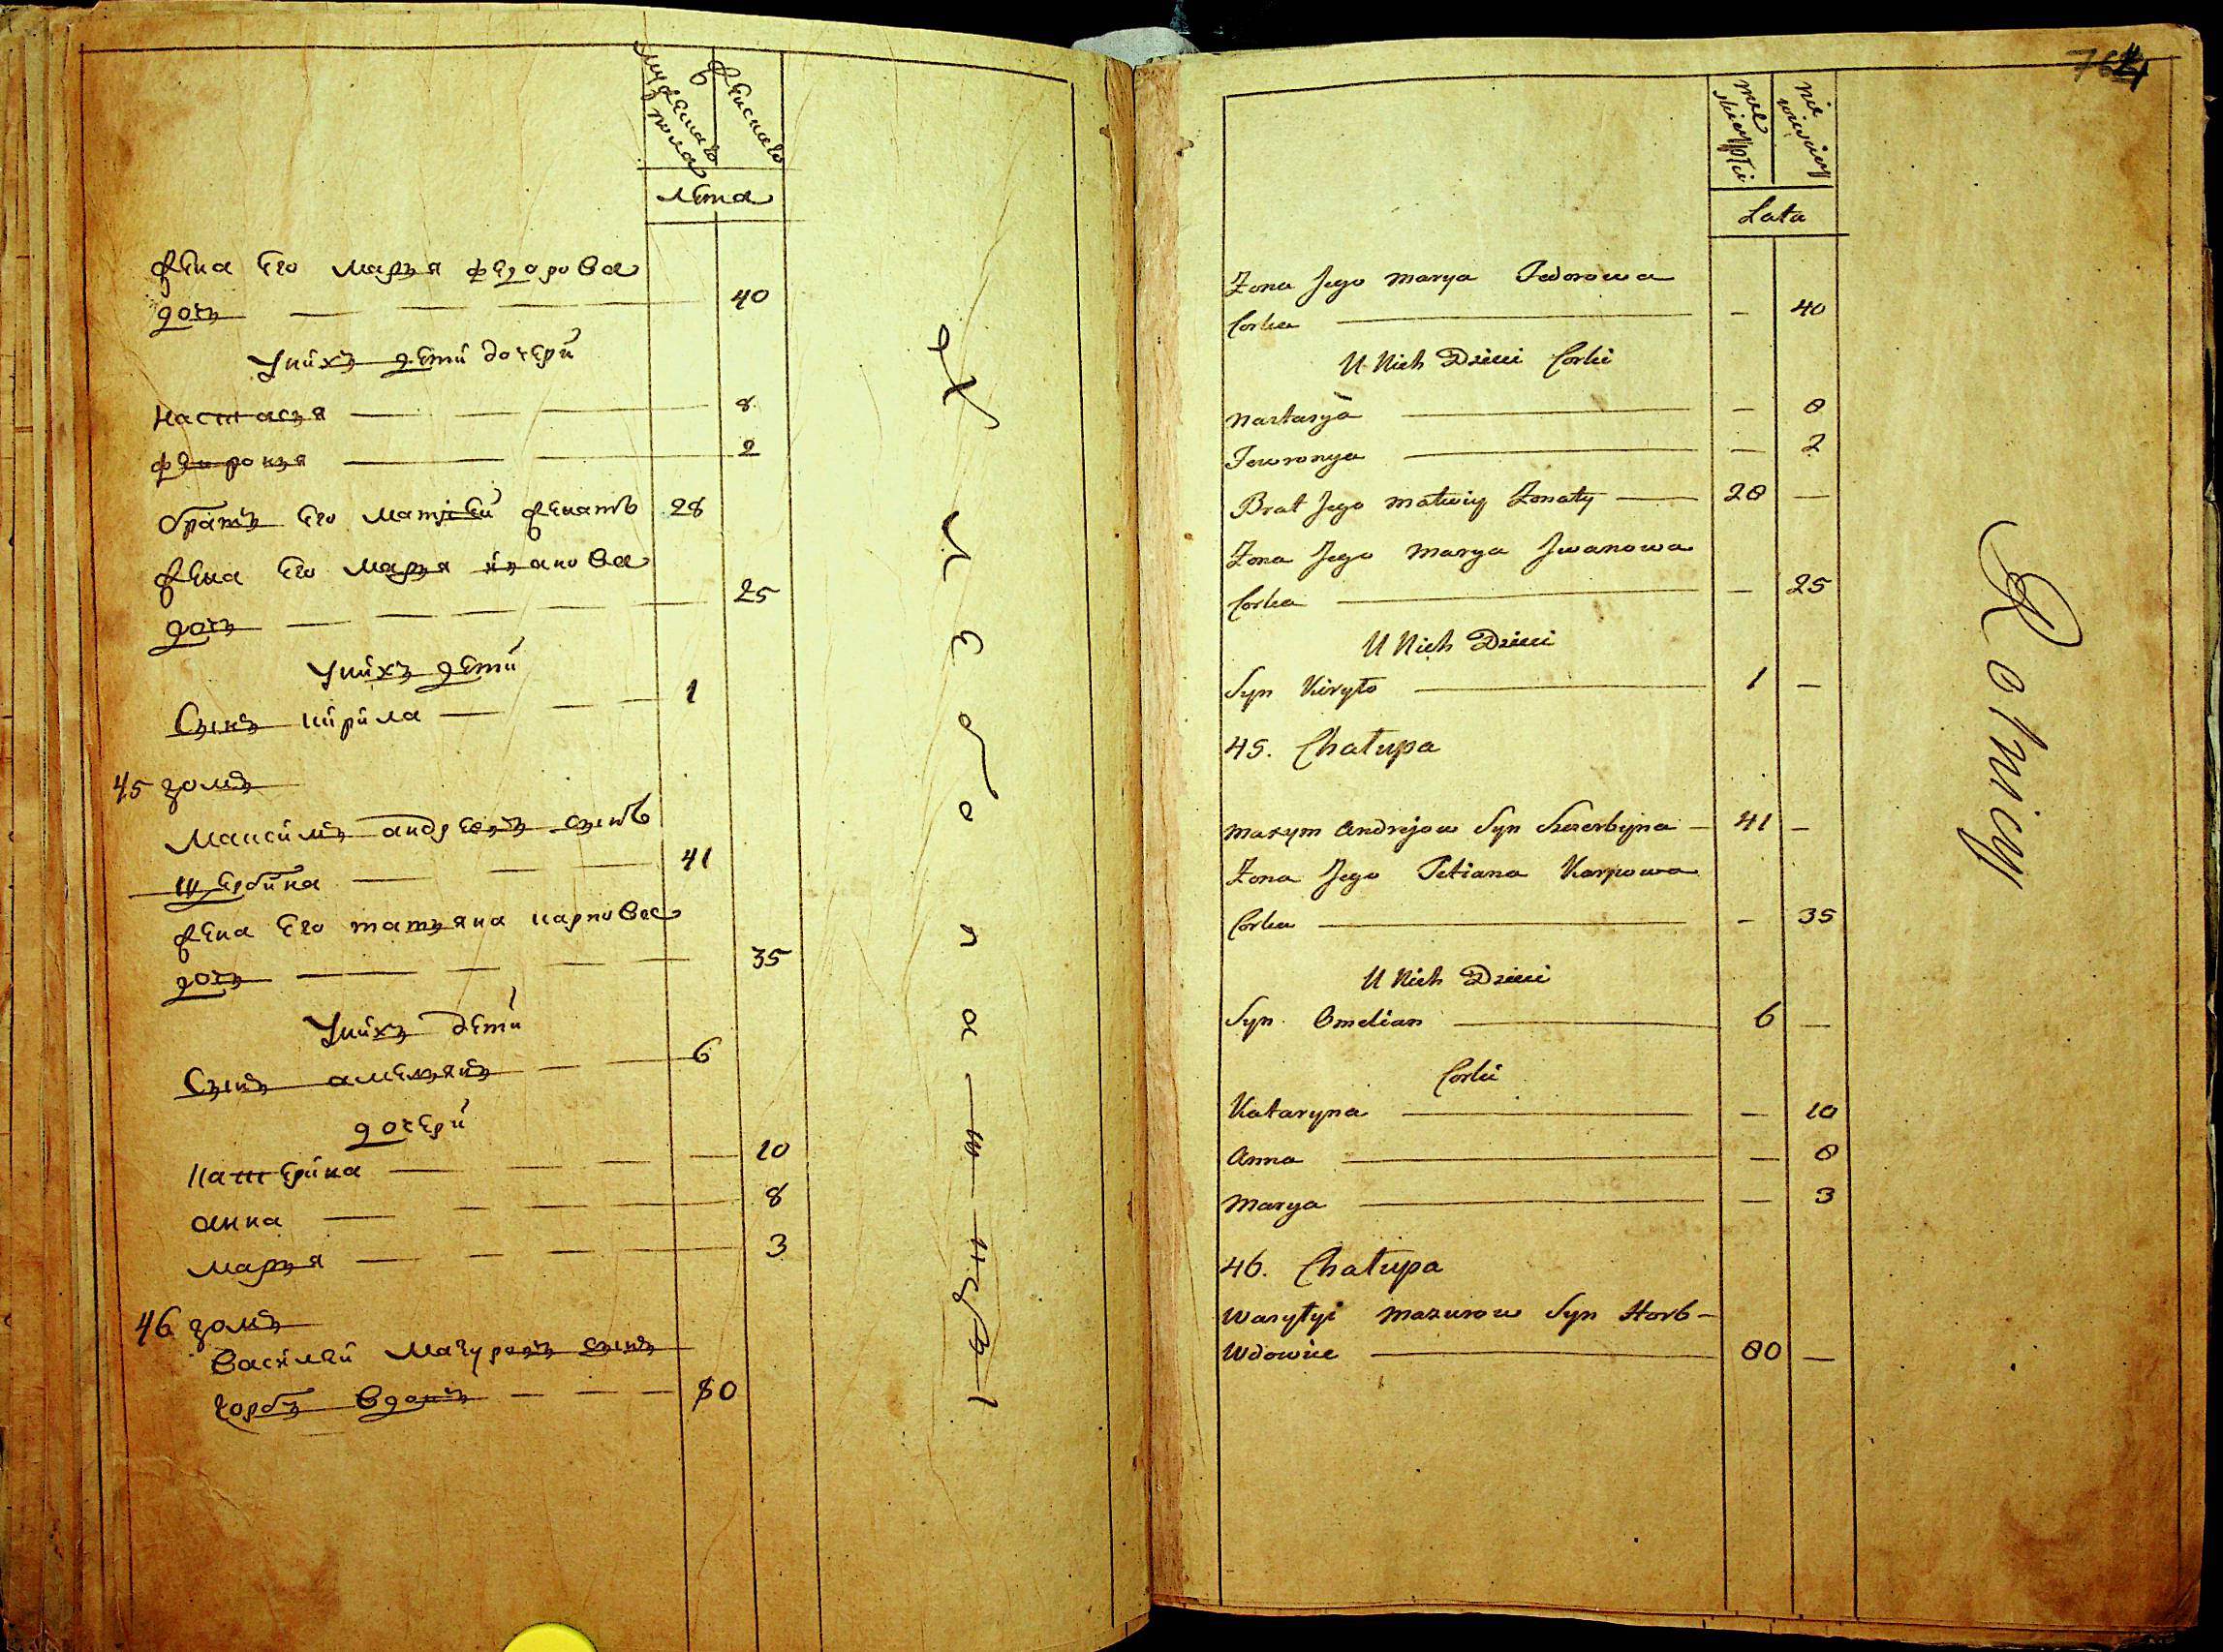 мужескаго пола
женскаго
лета
жена его марья федорова
дочь 40
у них дети дочери
настасья 8
февронья 2
братъ его матвей женатъ 28
жена его марья иванова
дочь 25
у нихъ дети
Сынъ кирила 1
45 домъ
Максимъ андреевъ сынъ
щербина 41
жена его татьяна карпова
дочь 35
у нихъ дети
Сынъ амельянъ 6
дочери
катерина 10
анна 8
марья 3
46 домъ
василей мазуровъ сынъ
горбъ вдовъ 80
764
męskiey płci
niewieściey
Lata
Żona Jego Marya Fedorowa
Corka — 40
U Nich Dzieci Corki
Nastasya — 8
Fewronya — 2
Brat Jego Matwiy Żonaty 28 —
Żona Jego Marya Jwanowa
Corka — 25
U Nich Dzieci
Syn Kiryło 1 —
45. Chałupa
Maxym Andrejow Syn Szczerbyna 41 —
Żona Jego Tetiana Karpowa
Corka — 35
U Nich Dzieci
Syn Omelian 6 —
Corki
Kataryna — 10
Anna — 8
Marya — 3
46. Chałupa
Wasylyi Mazurow Syn Horb
Wdowiec 80 —
Rolnicy